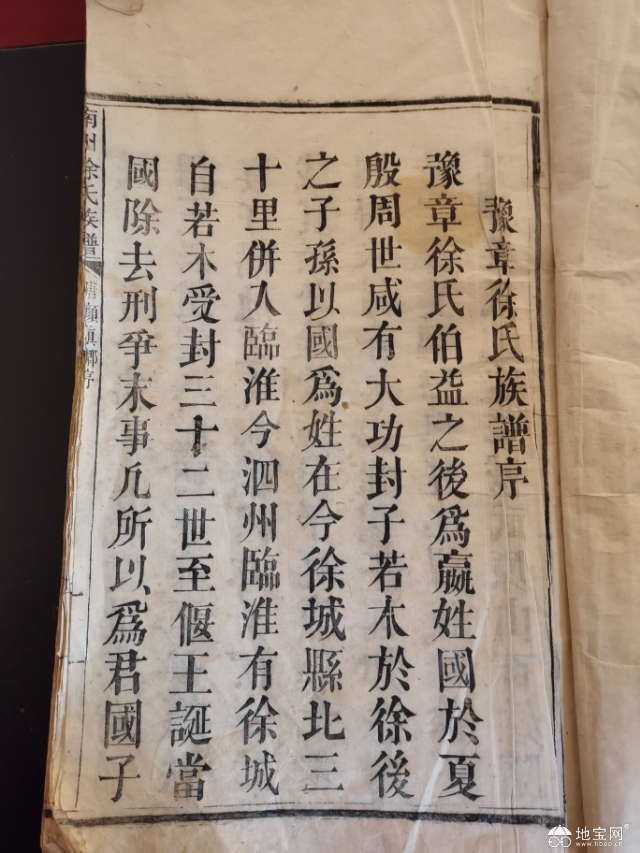 豫章徐氏族譜序
豫章徐氏伯益之後爲嬴姓國於夏
殷周世咸有大功封子若木於徐後
之子孫以國爲姓在今徐城縣北三
十里併入臨淮今泗州臨淮有徐城
自若木受封三十二世至偃王誕當
國除去刑爭末事凡所以爲君國子
南州徐氏族譜
唐顏真卿序
地宝网
www.tlbao.cn